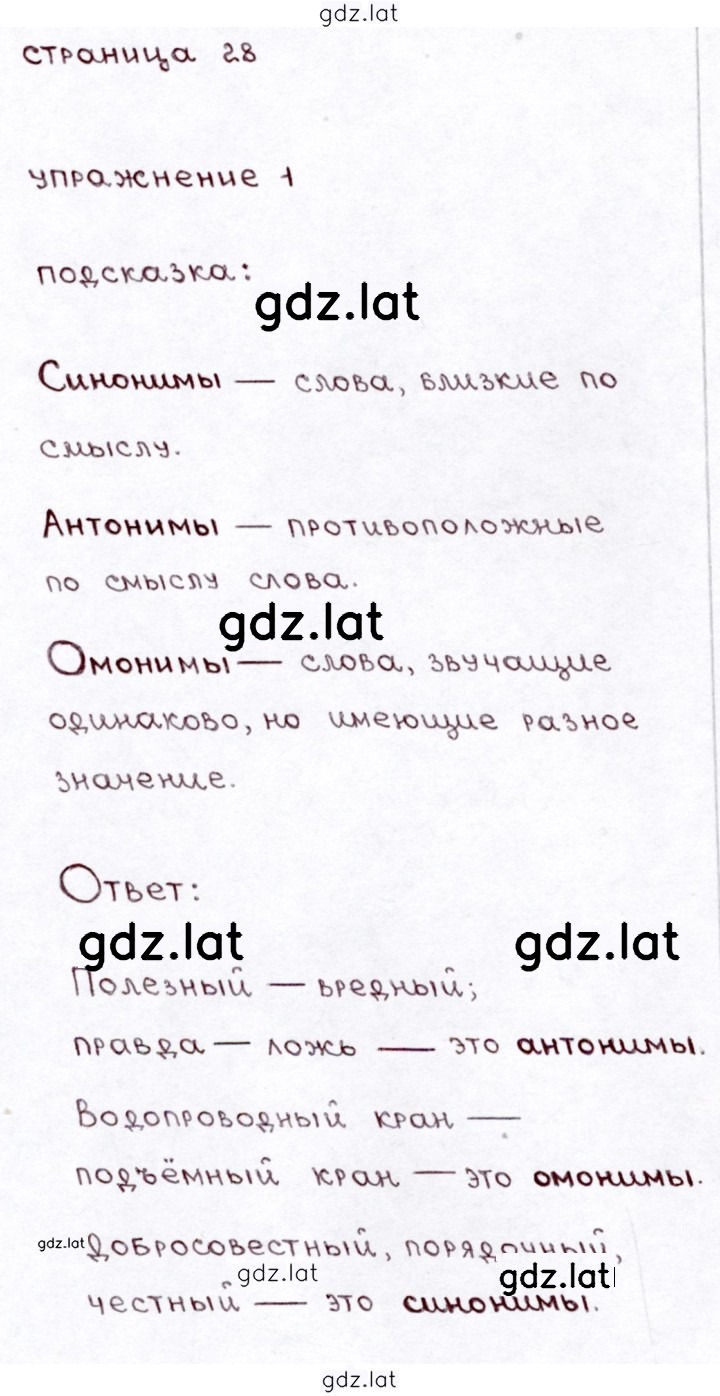 gdz.lat
страница 28
упражнение 1
подсказка:
gdz.lat
Синонимы — слова, близкие по
смыслу.
Антонимы — противоположные
по смыслу слова.
gdz.lat
Омонимы — слова, звучащие
одинаково, но имеющие разное
значение.
Ответ:
gdz.lat gdz.lat
Полезный — вредный;
правда — ложь — это антонимы.
Водопроводный кран —
подъёмный кран — это омонимы.
gdz.lat Добросовестный, порядочный,
gdz.lat gdz.lat
честный — это синонимы.
gdz.lat